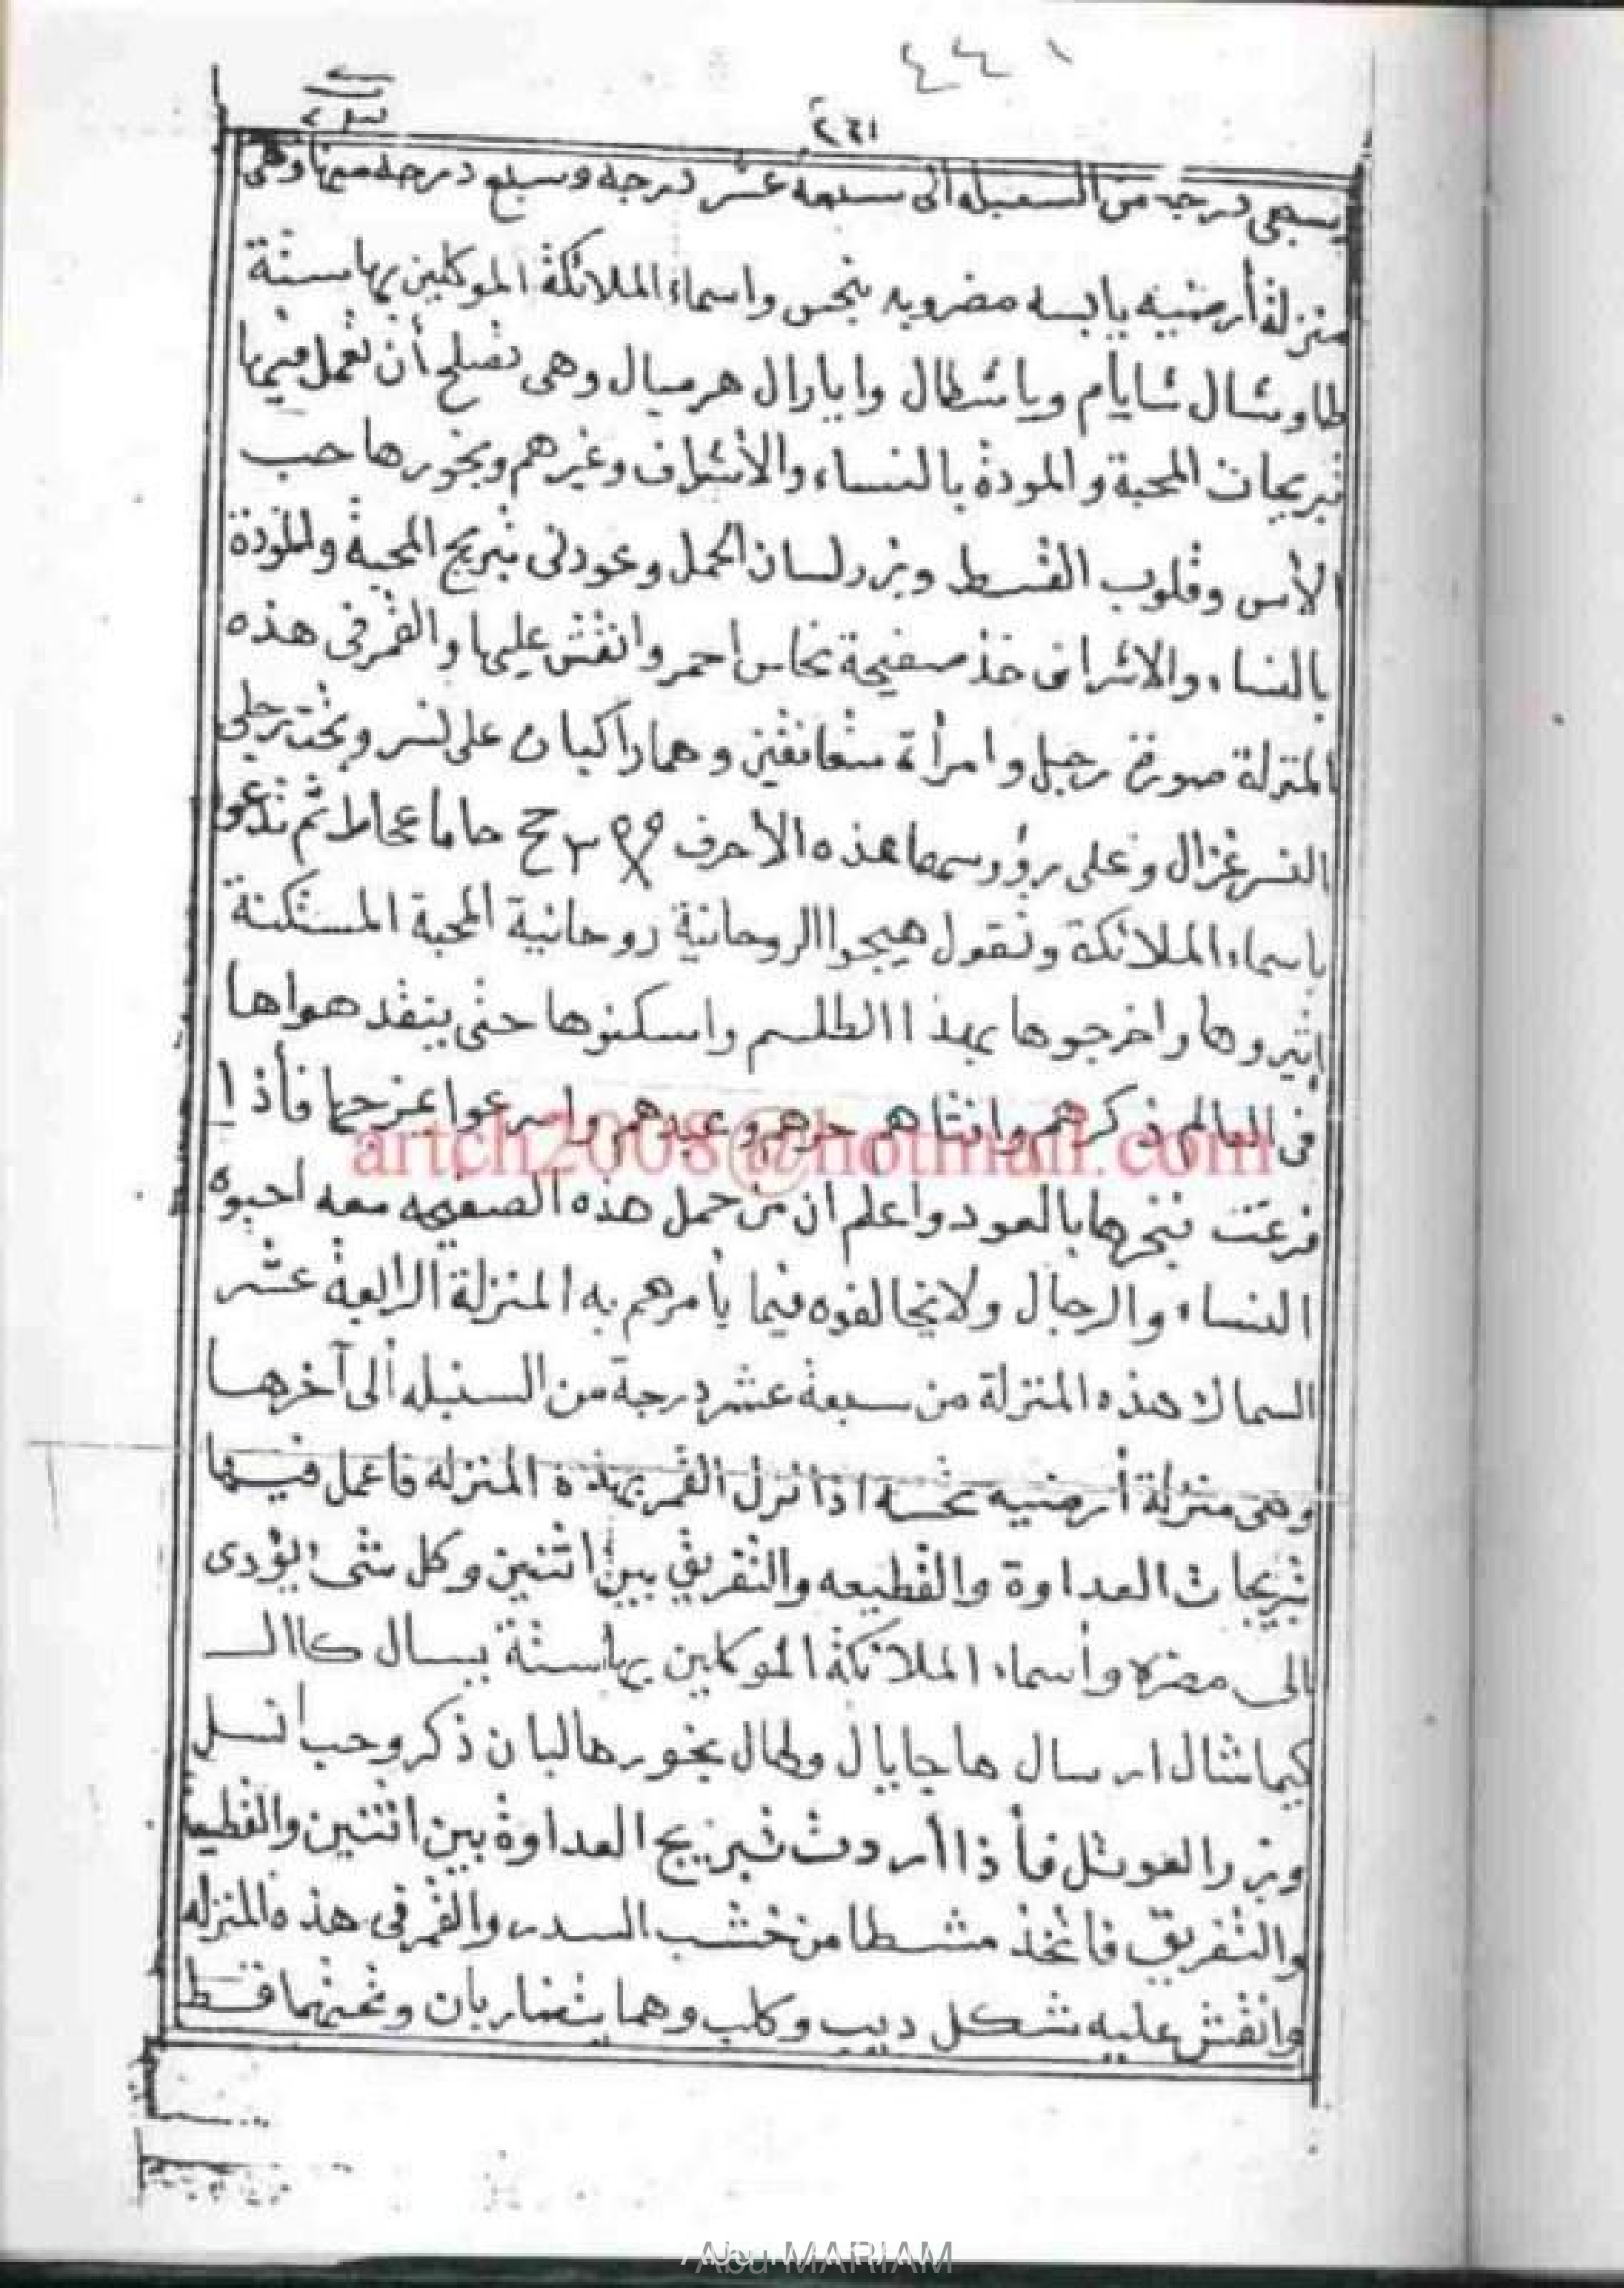 ٢٦١
درجة من السنبله الى سبعة عشر درجة وسبع درجه منها وهى
منزلة أرضيه يابسه مضروبه بنحس واسماء الملائكة الموكلين بها ستة
طاوشال شايام وياشطال وايارال هرميال وهى تصلح أن تعمل فيها
تبريجات المحبة والمودة بالنساء والأشراف وغيرهم وبخورها حب
لأس وقلوب القسط وبزر لسان الحمل وعود فى تبريج المحبة والمودة
بالنساء والاشراف خذ صفيحة نحاس احمر وانقش عليها والقمر فى هذه
المنزلة صورة رجل وامرأة متعانقين وهما راكبان على نسر وتحت رجلى
النسر غزال وعلى رؤوسهما هذه الأحرف حح حاماعحاط ثم تدعوا
باسماء الملائكة وتقول هيجوا الروحانية روحانية المحبة المستكنة
اثيروها واخرجوها بهذا الطلسم واسكنوها حتى ينفد هواها
فى العالم ذكرهم وانثاهم حرهم وعبدهم واسرعوا فأذا
artch2008@hotmail.com
فرغت فبخرها بالعود واعلم ان من حمل هذه الصفيحه معه احبوه
النساء والرجال ولا يخالفوه فيما يأمرهم به المنزلة الرابعة عشر
السماك هذه المنزلة من سبعة عشر درجة من السنبله ألى آخرها
وهى منزلة أرضيه نحسه اذا نزل القمر بهذه المنزله فاعمل فيها
تبريجات العداوة والقطيعه والتفريق بين اثنين وكل شىء يؤدى
الى مضره وأسماء الملائكة الموكلين بها ستة بيسال كاال
كيماشال ارسال هاجايال وطال بخورها لبان ذكر وحب
وبزر فأذا أردت تبريج العداوة بين اثنين والقطيعة
والتفريق فاتخذ مشطا من خشب السدر والقمر فى هذه المنزله
وانقش عليه شكل ديب وكلب وهما يتضاربان وتحتهما قط
Abu MARIAM